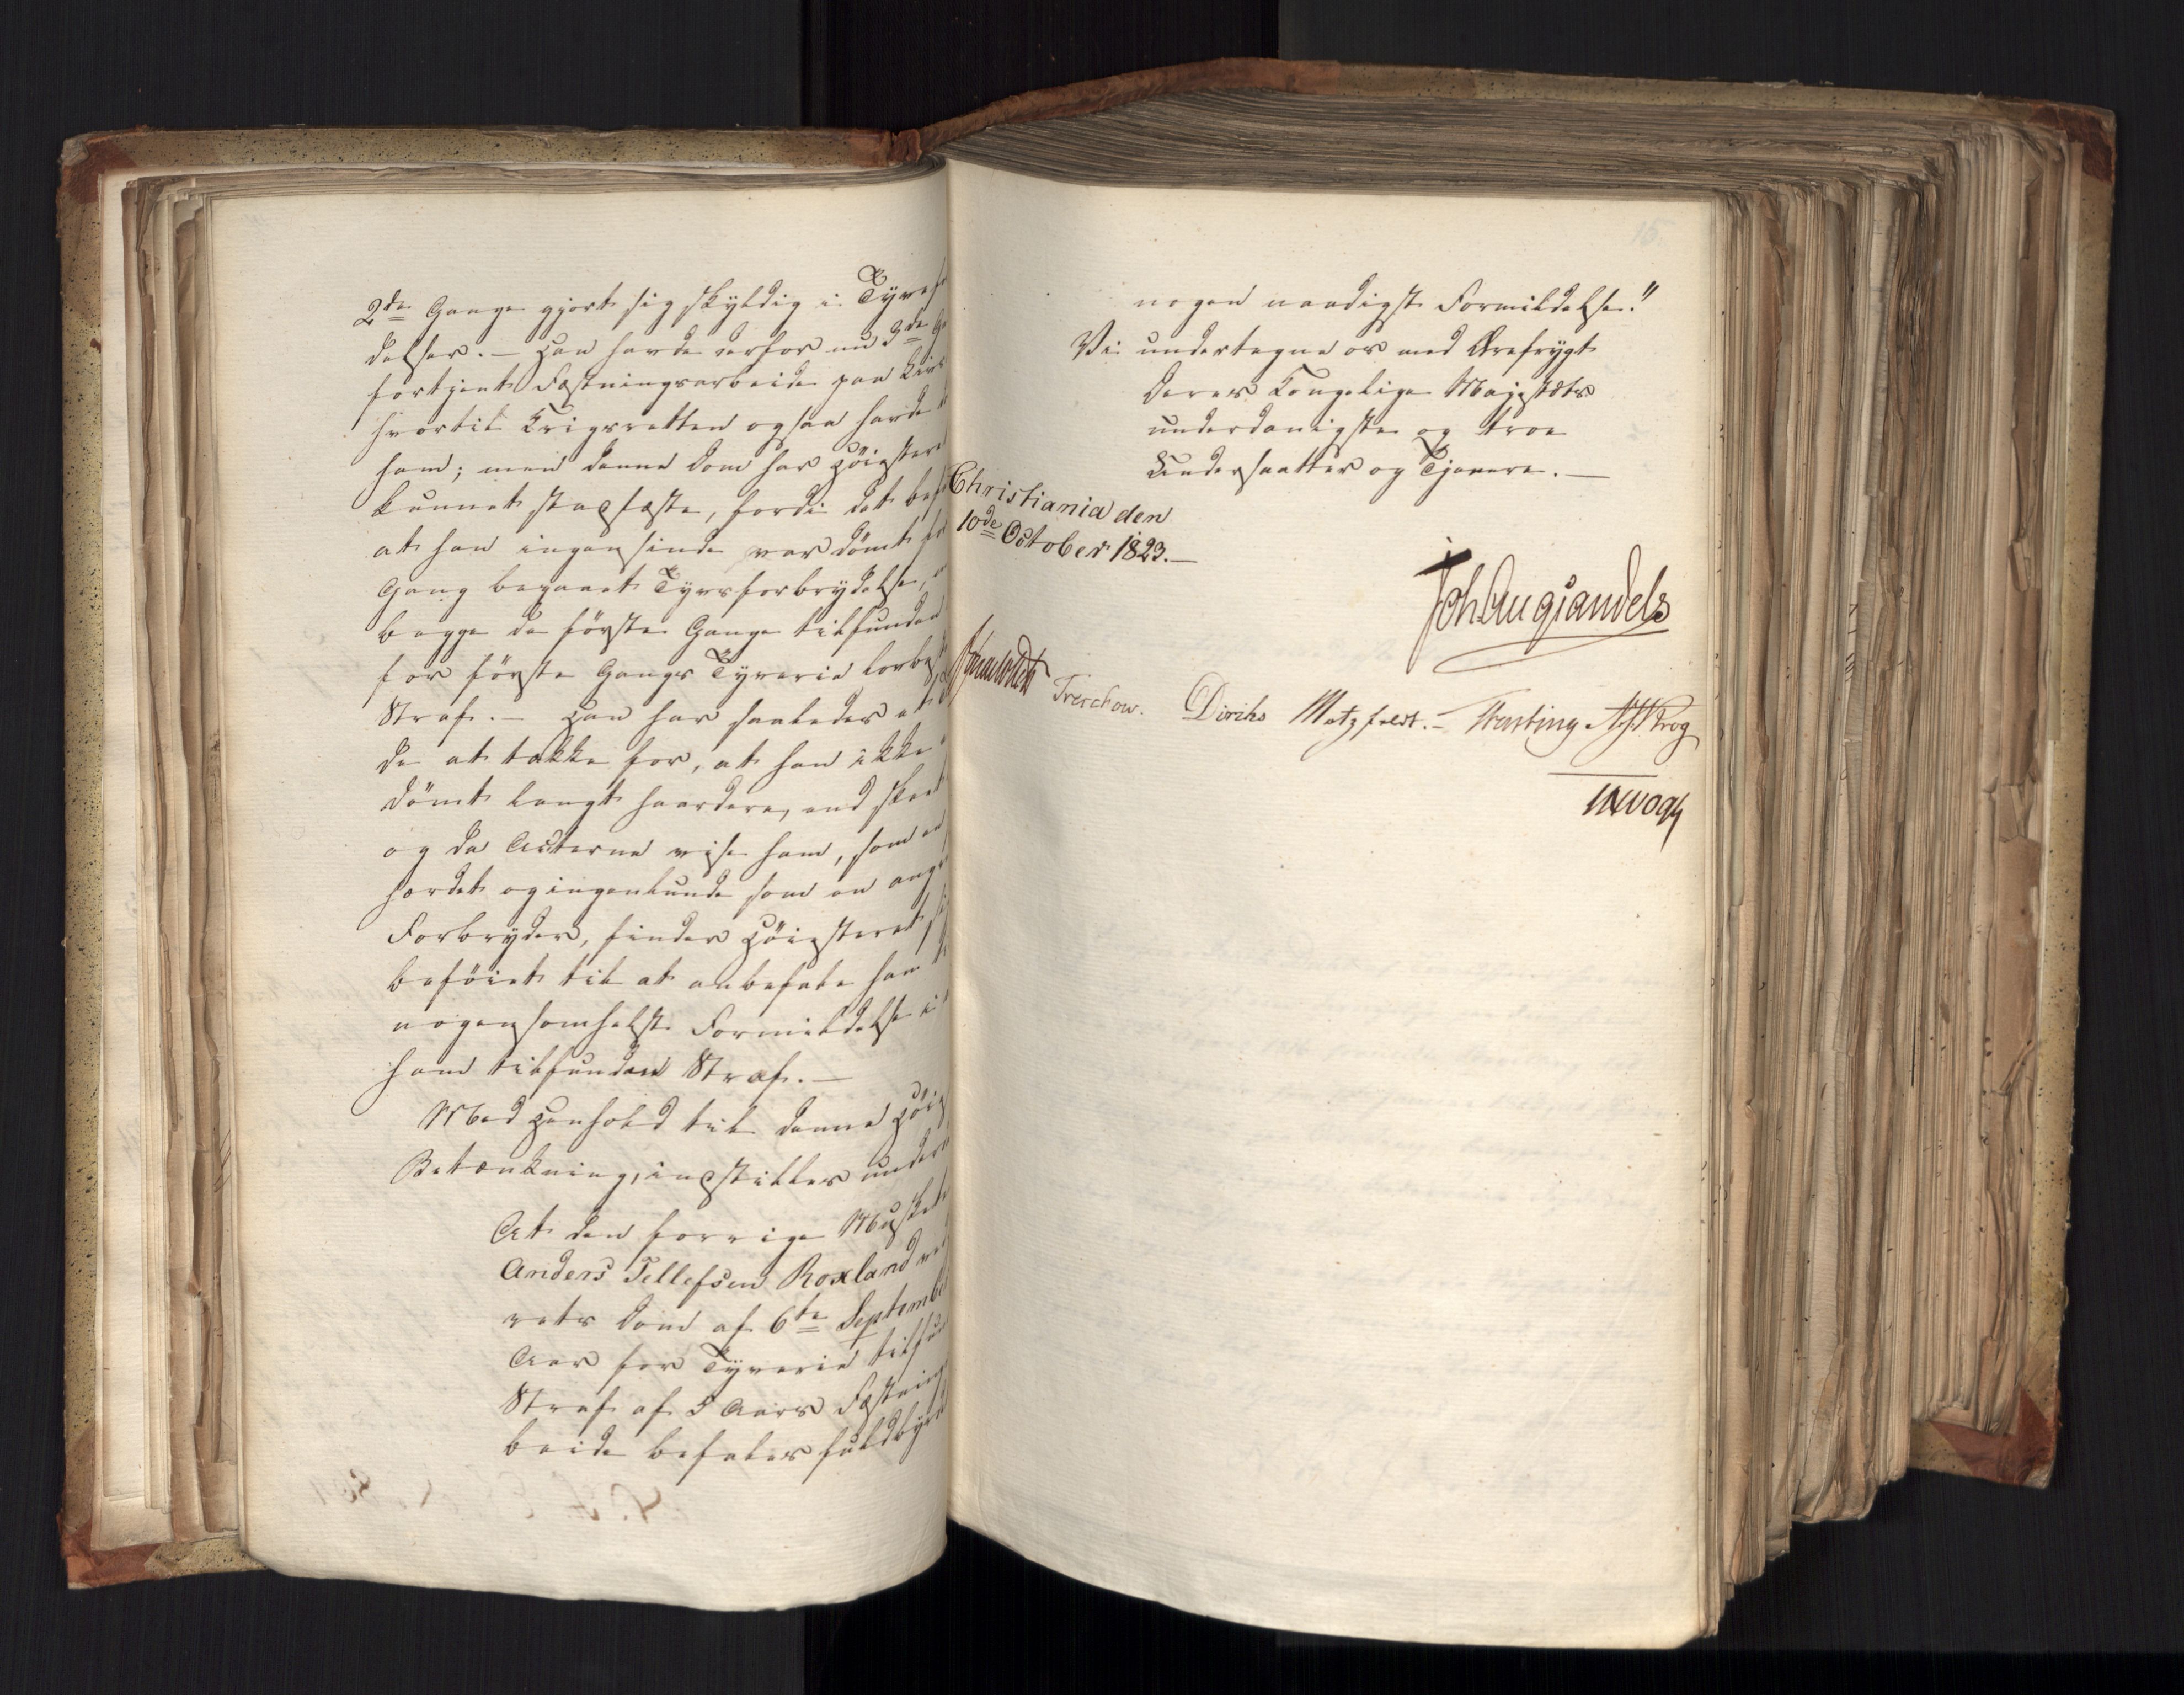 2de Gange gjort sig skyldig i Tyvsf
delser. – Han havde derfor nu 3de G
fortjent Fæstningsarbeide paa Livs
hvortil Krigsretten ogsaa havde d
ham; men denne Dom har Höieste
kunnet stadfæste, fordi det bef
at han ingensinde var dömt f
Gang begaaet Tyvsforbrydelse,
begge de förste Gange tilfunden
for förste Gangs Tyverie
Straf. – Han har saaledes
de at takke for, at han ikke
dömt langt haardere, end skeet
og da Acterne vise ham, som en
hærdet og ingenlunde som en ang
Forbryder, finder Höiesteret
beföiet til at anbefale ham
nogensomhelst Formildelse i
ham tilfunden Straf. –
Med Henhold til denne Höie
Betænkning, indstilles under
At den forrige Musket
Anders Tellefsen Roxland
rets Dom af 6te Septemb
Aar for Tyverie tilfun
Straf af 5 Aars Fæstning
beide befales fuldbyr
15
nogen naadigst Formildelse."
Vi undertegne os med Ærefrygt
Deres Kongelige Majestæts
underdanigste og troe
Undersaatter og Tjenere. –
Christiania den
10de October 1823. –
Joh Aug Sandels
Treschow. Diriks Motzfeldt. – Fasting Krog
Vogt